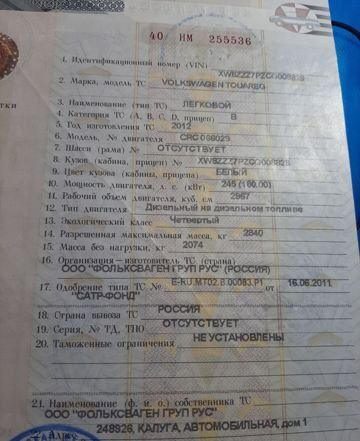 40 НМ 255536
1. Идентификационный номер (VIN) XW8ZZZ7PZCG006828
2. Марка, модель ТС VOLKSWAGEN TOUAREG
3. Наименование (тип ТС) ЛЕГКОВОЙ
4. Категория ТС (А, В, С, D, прицеп) В
5. Год изготовления ТС 2012
6. Модель, № двигателя CRC 066029
7. Шасси (рама) № ОТСУТСТВУЕТ
8. Кузов (кабина, прицеп) № XW8ZZZ7PZCG006828
9. Цвет кузова (кабины, прицепа) БЕЛЫЙ
10. Мощность двигателя, л. с. (кВт) 245 (180.00)
11. Рабочий объем двигателя, куб. см 2967
12. Тип двигателя Дизельный на дизельном топливе
13. Экологический класс Четвертый
14. Разрешенная максимальная масса, кг 2840
15. Масса без нагрузки, кг 2074
16. Организация—изготовитель ТС (страна)
ООО "ФОЛЬКСВАГЕН ГРУП РУС" (РОССИЯ)
17. Одобрение типа ТС № E-RU.MT02.B.00083.P1 от 16.06.2011
"САТР-ФОНД"
18. Страна вывоза ТС РОССИЯ
19. Серия, № ТД, ТПО ОТСУТСТВУЕТ
20. Таможенные ограничения НЕ УСТАНОВЛЕНЫ
21. Наименование (ф. и. о.) собственника ТС
ООО "ФОЛЬКСВАГЕН ГРУП РУС"
248926, КАЛУГА, АВТОМОБИЛЬНАЯ, дом 1